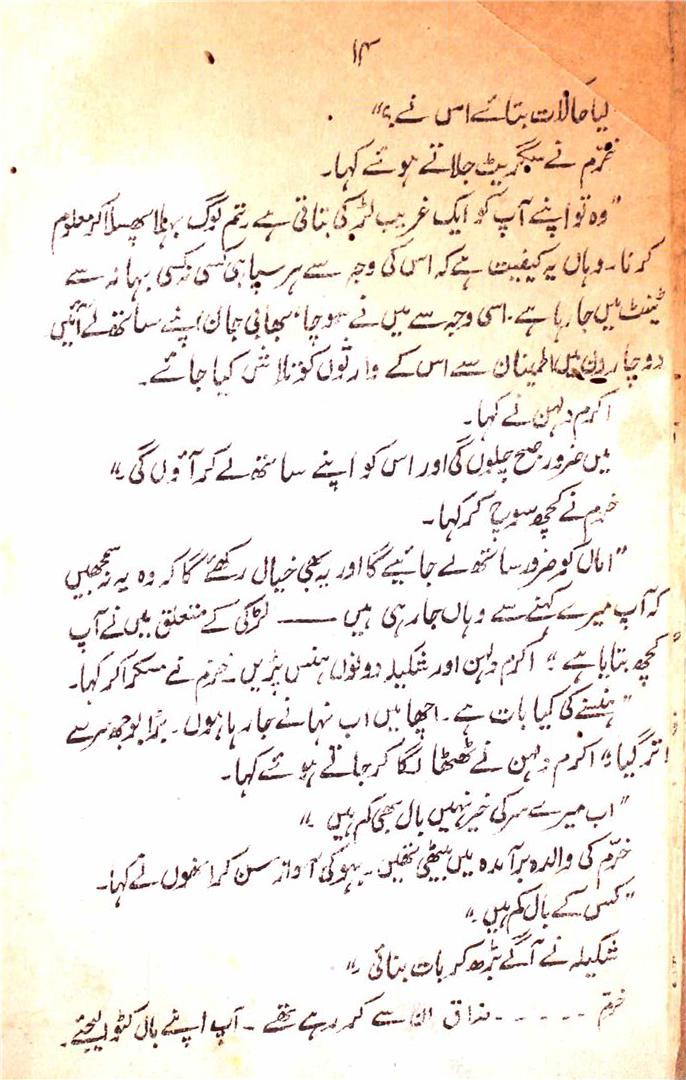 ۱۴
کیا حالات بتائے اس نے ؟"
خرّم نے سگریٹ جلاتے ہوئے کہا۔
"وہ تو اپنے آپ کو ایک غریب لڑکی بتاتی ہے تم لوگ بہلا پھسلا کر معلوم
کرنا۔ وہاں یہ کیفیت ہے کہ اس کی وجہ سے ہر سپاہی کسی نہ کسی بہانہ سے
ٹینٹ میں جا رہا ہے۔ اسی وجہ سے میں نے سوچا، بھابی جان اپنے ساتھ لے آئیں
دو چار دن میں اطمینان سے اس کے وارثوں کو تلاش کیا جائے۔
اکرم دلہن نے کہا۔
میں ضرور صبح چلوں گی اور اس کو اپنے ساتھ لے کر آؤں گی۔"
خرم نے کچھ سوچ کر کہا۔
"اماں کو ضرور ساتھ لے جائیے گا اور یہ بھی خیال رکھئے گا کہ وہ یہ نہ سمجھیں
کہ آپ میرے کہنے سے وہاں جا رہی ہیں —— لڑکی کے متعلق میں نے آپ
کچھ بتایا ہے" اکرم دلہن اور شکیلہ دونوں ہنس پڑیں۔ خرّم نے مسکرا کر کہا۔
"ہنسنے کی کیا بات ہے۔ اچھا میں اب نہانے جا رہا ہوں۔ بڑا بوجھ سر سے
اتر گیا" اکرم دلہن نے ٹھٹھا لگا کر جاتے ہوئے کہا۔
"اب میرے سر کی خیر نہیں بال بھی کم ہیں۔"
خرّم کی والدہ برآمدہ میں بیٹھی تھیں۔ بہو کی آواز سن کر انھوں نے کہا۔
"کس کے بال کم ہیں۔"
شکیلہ نے آگے بڑھ کر بات بنائی۔"
خرّم ۔۔۔۔۔۔ مذاق ان سے کر رہے تھے ۔ آپ اپنے بال کٹوا لیجئے۔